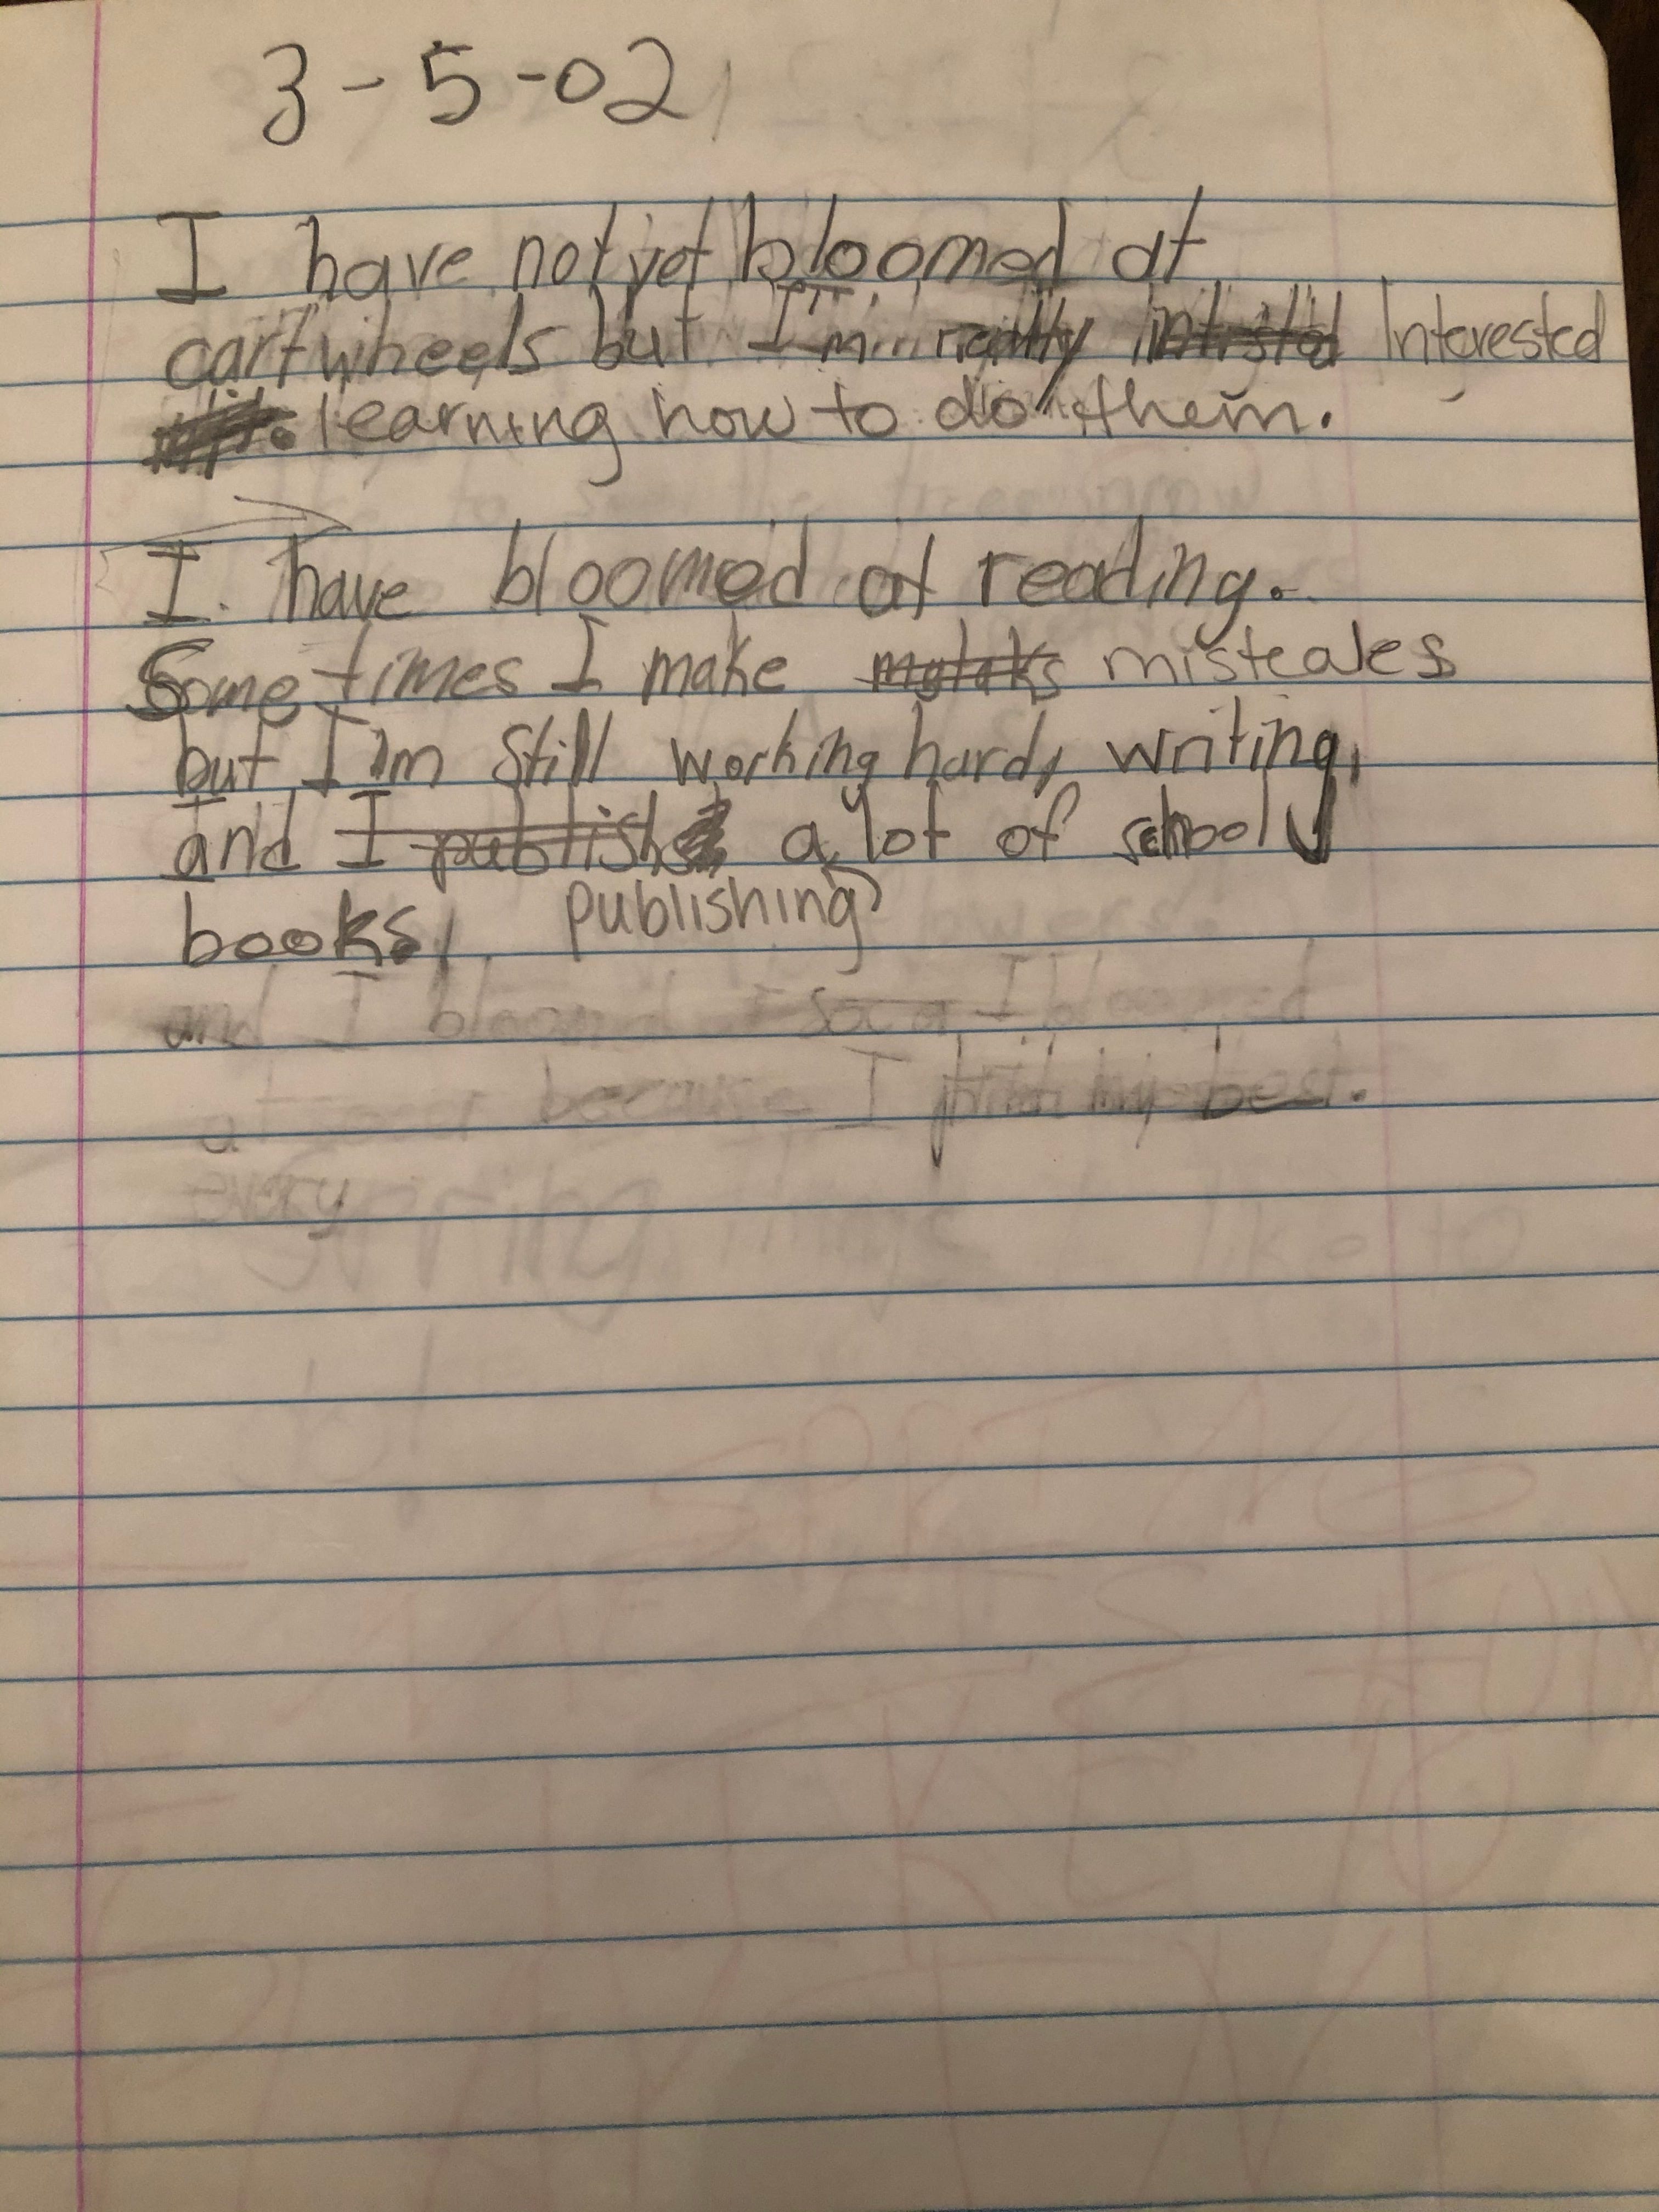 3-5-02
I have not yet bloomed at
cartwheels but I'm really intristed Interested
learning how to do them.
I have bloomed at reading.
Sometimes I make mistaks misteakes
but I'm still working hard, writing,
and I publish a lot of school
books, publishing
and I bloomed I bloomed
at because I my best.
every